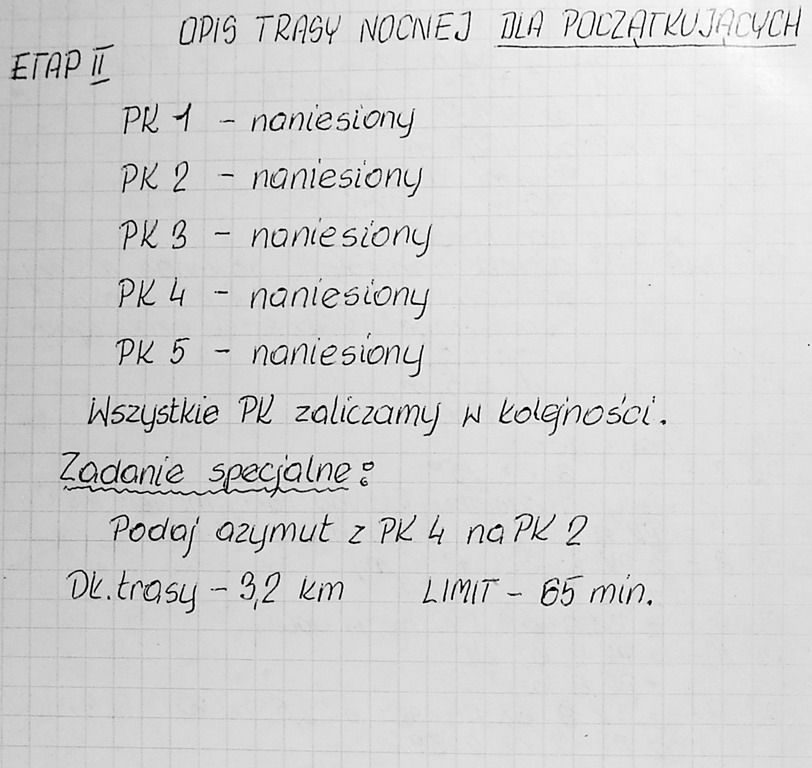 OPIS TRASY NOCNEJ DLA POCZĄTKUJĄCYCH
ETAP II
PK 1 - naniesiony
PK 2 - naniesiony
PK 3 - naniesiony
PK 4 - naniesiony
PK 5 - naniesiony
Wszystkie PK zaliczamy w kolejności.
Zadanie specjalne:
Podaj azymut z PK 4 na PK 2
Dł. trasy - 3,2 km LIMIT - 65 min.